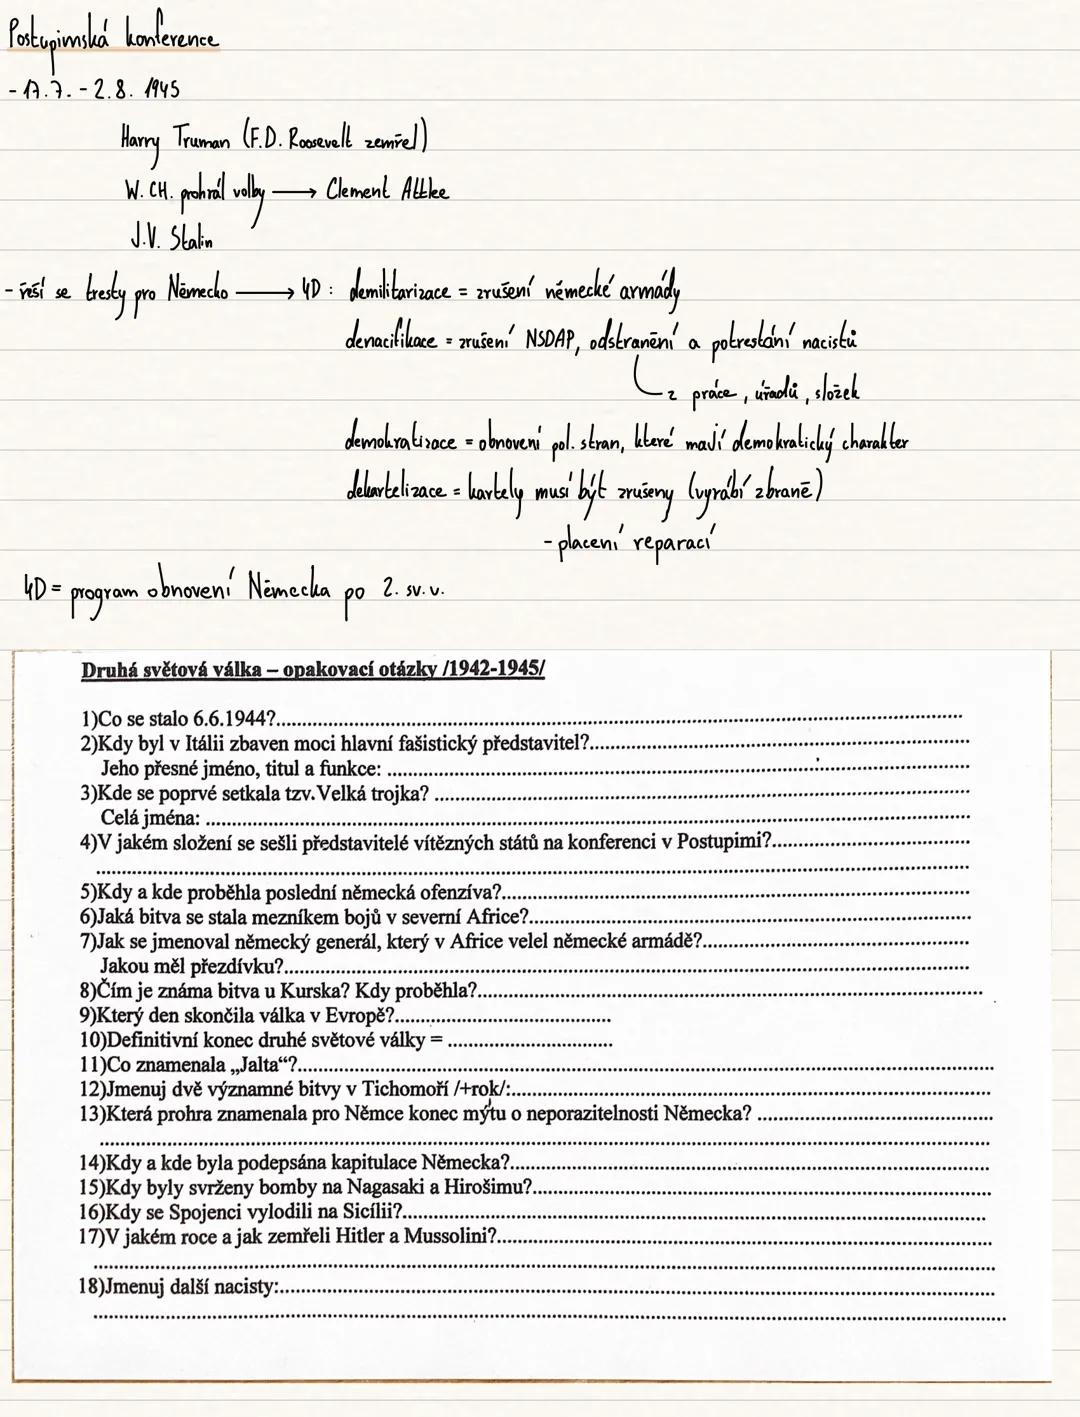 Postupimská konference
- 17.7. - 2.8. 1945
Harry Truman (F.D. Roosevelt zemřel)
W. CH. prohrál volby → Clement Attlee
J.V. Stalin
- řeší se tresty pro Německo → 4D: demilitarizace = zrušení německé armády
denacifikace = zrušení NSDAP, odstranění a potrestání nacistů
z práce, úřadů, složek
demokratizace = obnovení pol. stran, které mají demokratický charakter
dekartelizace = kartely musí být zrušeny (vyrábí zbraně)
- placení reparací
4D = program obnovení Německa po 2. sv. v.
Druhá světová válka – opakovací otázky /1942-1945/
1)Co se stalo 6.6.1944?
2)Kdy byl v Itálii zbaven moci hlavní fašistický představitel?
Jeho přesné jméno, titul a funkce:
3)Kde se poprvé setkala tzv.Velká trojka?
Celá jména:
4)V jakém složení se sešli představitelé vítězných států na konferenci v Postupimi?
5)Kdy a kde proběhla poslední německá ofenzíva?
6)Jaká bitva se stala mezníkem bojů v severní Africe?
7)Jak se jmenoval německý generál, který v Africe velel německé armádě?
Jakou měl přezdívku?
8)Čím je známa bitva u Kurska? Kdy proběhla?
9)Který den skončila válka v Evropě?
10)Definitivní konec druhé světové války =
11)Co znamenala „Jalta“?
12)Jmenuj dvě významné bitvy v Tichomoří /+rok/:
13)Která prohra znamenala pro Němce konec mýtu o neporazitelnosti Německa?
14)Kdy a kde byla podepsána kapitulace Německa?
15)Kdy byly svrženy bomby na Nagasaki a Hirošimu?
16)Kdy se Spojenci vylodili na Sicílii?
17)V jakém roce a jak zemřeli Hitler a Mussolini?
18)Jmenuj další nacisty: